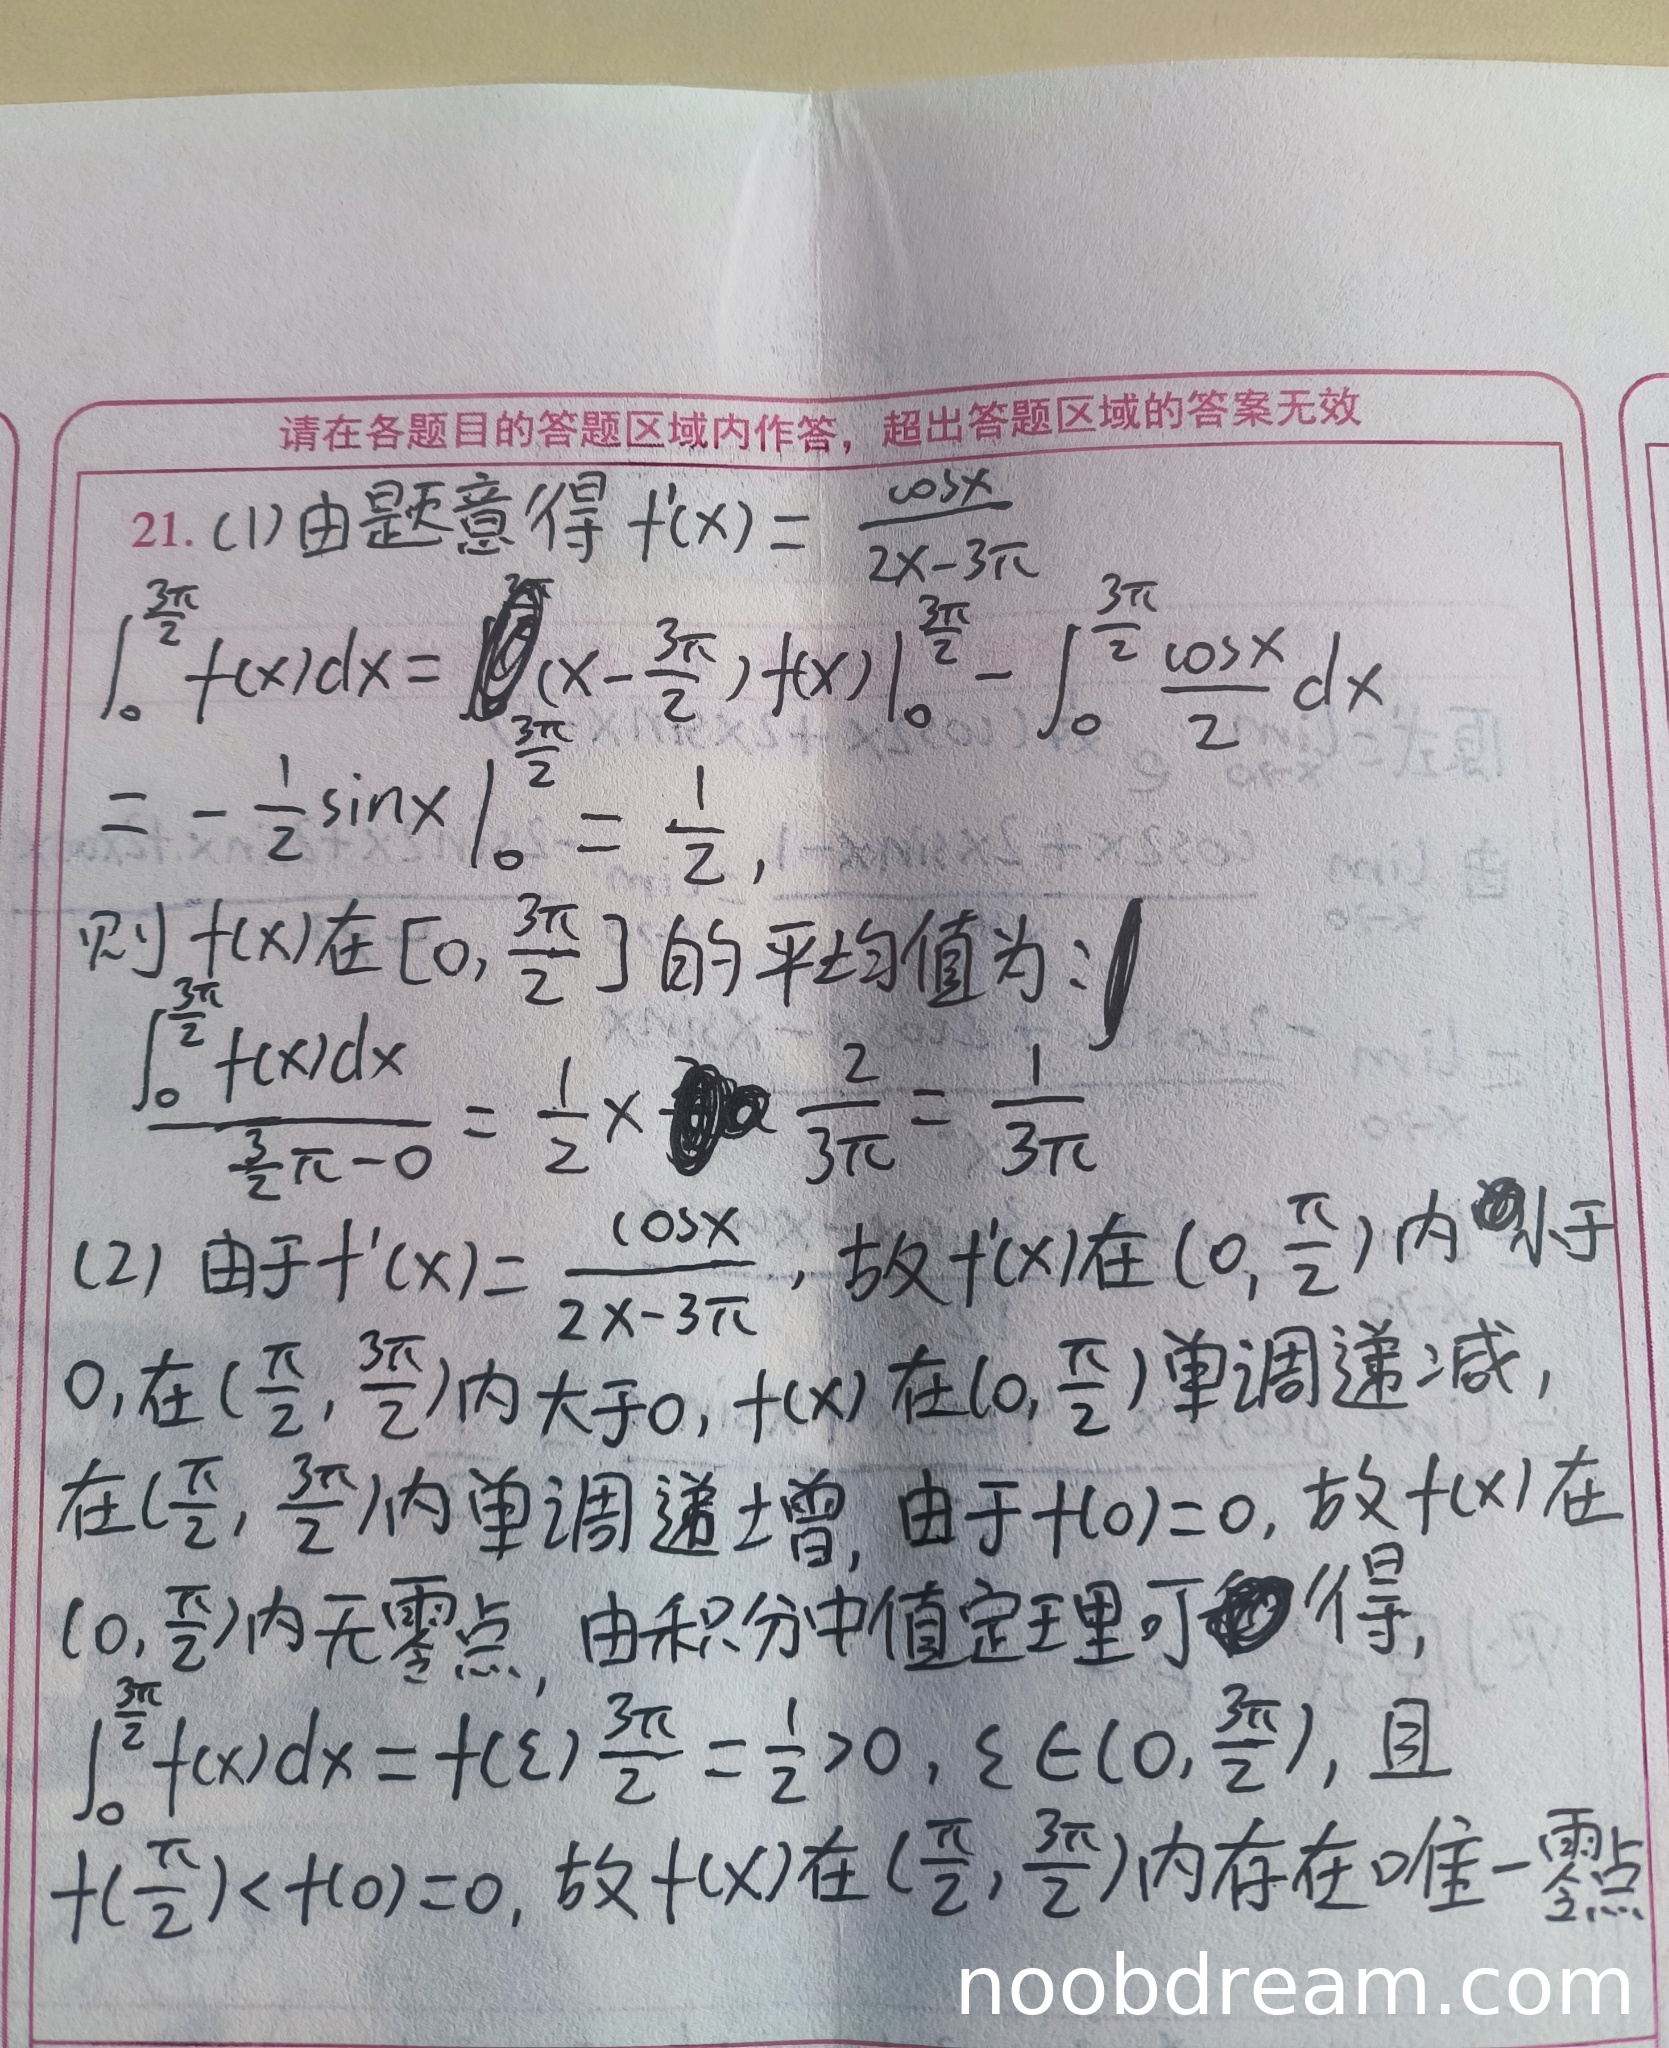 请在各题目的答题区域内作答，超出答题区域的答案无效
21. (1)由题意得 f'(x) = cosx/(2x-3π)
∫₀^(3π/2) f(x)dx = (x - 3π/2) f(x)|₀^(3π/2) - ∫₀^(3π/2) cosx/2 dx
= - 1/2 sinx |₀^(3π/2) = 1/2,
则 f(x)在[0, 3π/2]的平均值为:
∫₀^(3π/2) f(x)dx / (3/2 π - 0) = 1/2 × 2/3π = 1/3π
(2) 由于f'(x) = cosx/(2x-3π), 故f'(x)在(0, π/2)内小于
0,在(π/2, 3π/2)内大于0, f(x)在(0, π/2)单调递减,
在(π/2, 3π/2)内单调递增, 由于f(0)=0, 故f(x)在
(0, π/2)内无零点, 由积分中值定理可得,
∫₀^(3π/2) f(x)dx = f(ξ) 3π/2 = 1/2 >0, ξ∈(0, 3π/2), 且
f(π/2)<f(0)=0, 故f(x)在(π/2, 3π/2)内存在唯一零点
noobdream.com